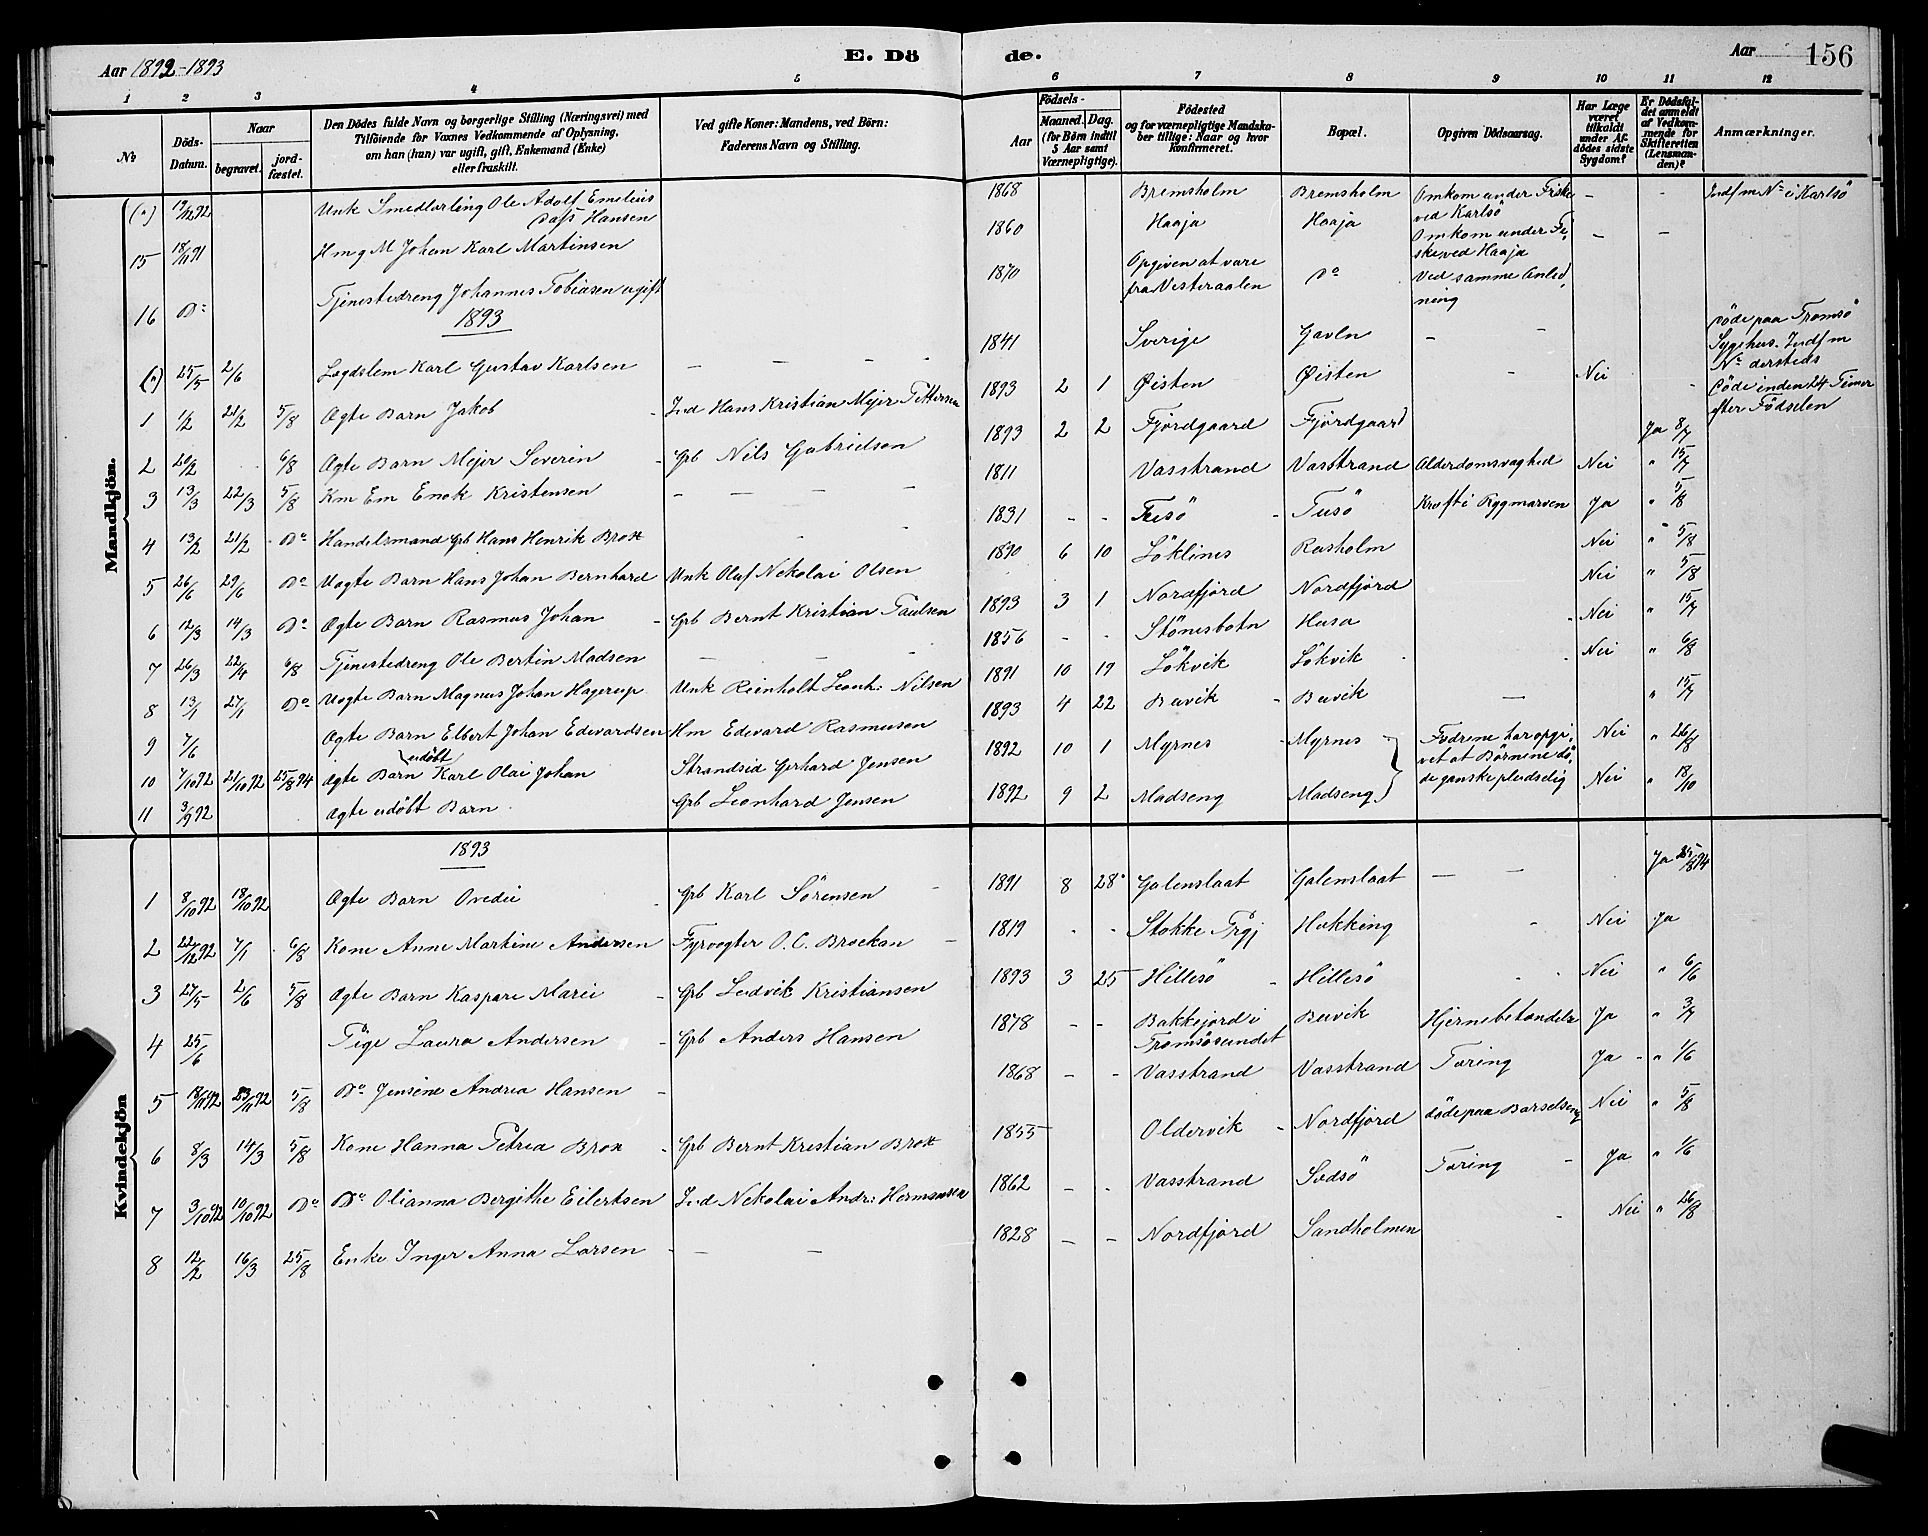 Aar 1892-1893 E. Dö de. Aar 156
1 2 3 4 5 6 7 8 9 10 11 12
No Döds-Datum. Naar begravet. jord-fæstet. Den Dödes fulde Navn og borgerlige Stilling (Næringsvei) med Tilföiende for Vaxnes Vedkommende af Oplysning, om han (hun) var ugift, gift, Enkemand (Enke) eller fraskilt. Ved gifte Koner: Mandens, ved Börn: Faderens Navn og Stilling. Födsels- Aar Maaned. Dag. (for Börn indtil 5 Aar samt Værnepligtige). Födested og for værnepligtige Mandskaber tillige: Naar og hvor konfirmeret. Bopæl. Opgiven Dödsaarsag. Har Læge været tilkaldt under Afdödes sidste Sygdom? Er Dödsfaldet anmeldt af Vedkommende for Skifteretten (Lensmanden)? Anmærkninger.
Mandkjön.
(") 19/12 92 Unk Smedlærling Ole Adolf Emelius Dass Hansen 1868 Bremsholm Bremsholm Omkom under Fiske ved Karlsö – – Indf m No i Karlsö
15 18/11 91 Hmg M Johan Karl Martinsen 1860 Haaja Haaja Omkom under Fiske ved Haaja – –
16 Do Tjenestedreng Johannes Tobiasen ugift 1870 Opgiven at være fra Vesteraalen Do Ved samme Anledning
1893
(") 25/5 2/6 Lægdslem Karl Gustav Karlsen – – – 1841 Sverige Gavln – – Döde paa Tromsö Sygehus. Indf m No dersteds
1 1/2 21/2 5/8 Ægte Barn Jakob Ind Hans Kristian Mejer Pettersen 1893 2 1 Øisten Øisten Nei Döde inden 24 Timer efter Födselen
2 20/2 6/8 Ægte Barn Mejer Severin Grb Nils Gabrielsen 1893 2 2 Fjordgaard Fjördgaard Ja 8/7
3 13/3 22/3 5/8 Km Em Enok Kristensen – – – – 1811 Vasstrand Vasstrand Alderdomsvaghed Nei " 15/7
4 13/2 21/2 Do Handelsmand Grb Hans Henrik Brox 1831 – – Tusö Tusö Kræft i Rygmarven Ja " 5/8
5 26/6 29/6 Do Uægte Barn Hans Johan Bernhard Unk Olaf Nekolai Olsen 1890 6 10 Löklines Rasholm Nei " 5/8
6 12/3 19/3 Do Ægte Barn Rasmus Johan Grb Bernt Kristian Paulsen 1893 3 1 Nordfjord Nordfjörd Nei " 5/8
7 26/3 22/4 6/8 Tjenestedreng Ole Bertin Madsen – – 1856 - - Stönesbotn Husa Nei " 15/7
8 13/1 27/1 Do Uægte Barn Magnus Johan Hagerup Unk Reinholt Leonh: Nilsen 1891 10 19 Lökvik Lökvik Nei " 6/8
9 7/6 Ægte Barn Elbert Johan Edevardsen Hm Edevard Rasmusen 1893 4 22 Buvik Buvik – " 15/7
10 7/10 92 21/10 92 25/8 94 Ægte udöbt Barn Karl Olai Johan Strandsid Gerhard Jensen 1892 10 1 Myrnes Myrnes Fædrene har opgivet at Börnene döde ganske pludselig Nei " 26/8
11 3/9 92 Ægte udöbt Barn Grb Leonhard Jensen 1892 9 2 Madseng Madseng Nei " 18/10
Kvindekjön
1893
1 8/10 92 18/10 92 Ægte Barn Ovedie Grb Karl Sörensen 1891 8 28 Galenslaat Galenslaat – – Ja 25/8 94
2 22/12 92 7/1 6/8 Kone Anne Martine Andersen Fyrvogter O. C. Brockan 1819 - - Stokke Prgj Hekking Nei Ja
3 27/5 2/6 5/8 Ægte Barn Kaspare Marie Grb Ludvik Kristiansen 1893 3 25 Hillesö Hillesö Nei " 6/6
4 25/6 Pige Laura Andersen Grb Anders Hansen 1878 - - Bakkejord i Tromsösundet Buvik Hjernebetændelse Ja " 3/7
5 18/11 92 23/11 92 5/8 Do Jensine Andrea Hansen – 1868 – - Vasstrand Vasstrand Tæring Ja " 1/6
6 8/3 14/3 5/8 Kone Hanna Petrea Brox Grb Bernt Kristian Brox 1855 Oldervik Nordfjord döde paa Barselseng Nei " 5/8
7 3/10 92 10/10 92 Do Do Olianna Bergithe Eilertsen Ind Nekolai Andr: Hermansen 1862 – - Vasstrand Sudsö Tæring Ja " 1/6
8 12/2 16/3 25/8 Enke Inger Anna Larsen – – 1828 – - Nordfjord Sandholmen Nei " 26/8